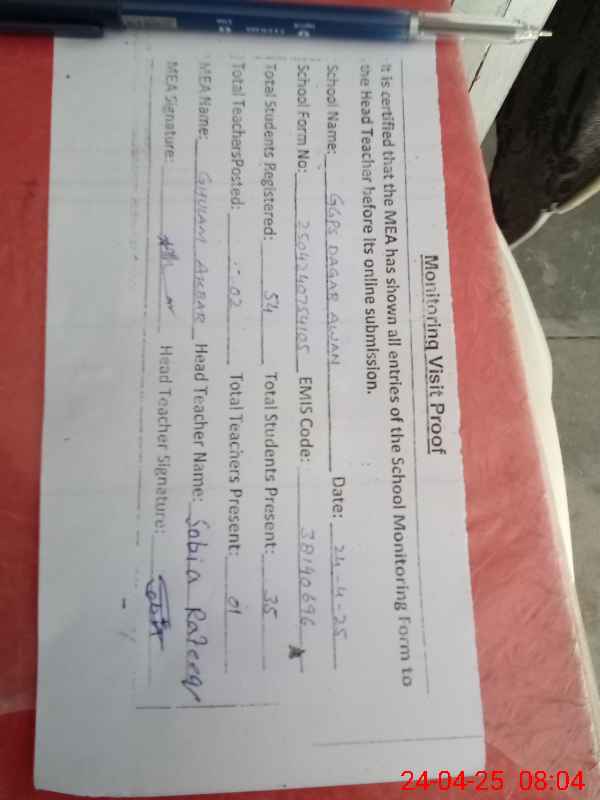 Monitoring Visit Proof
It is certified that the MEA has shown all entries of the School Monitoring Form to
the Head Teacher before its online submission.
School Name: GGPS DAGAR AWAN Date: 24-4-25
School Form No: EMIS Code: 38140696
Total Students Registered: 54 Total Students Present: 35
Total TeachersPosted: 02 Total Teachers Present: 01
MEA Name: GHULAM AKBAR Head Teacher Name: Sobia
MEA Signature: Head Teacher Signature:
24-04-25 08:04